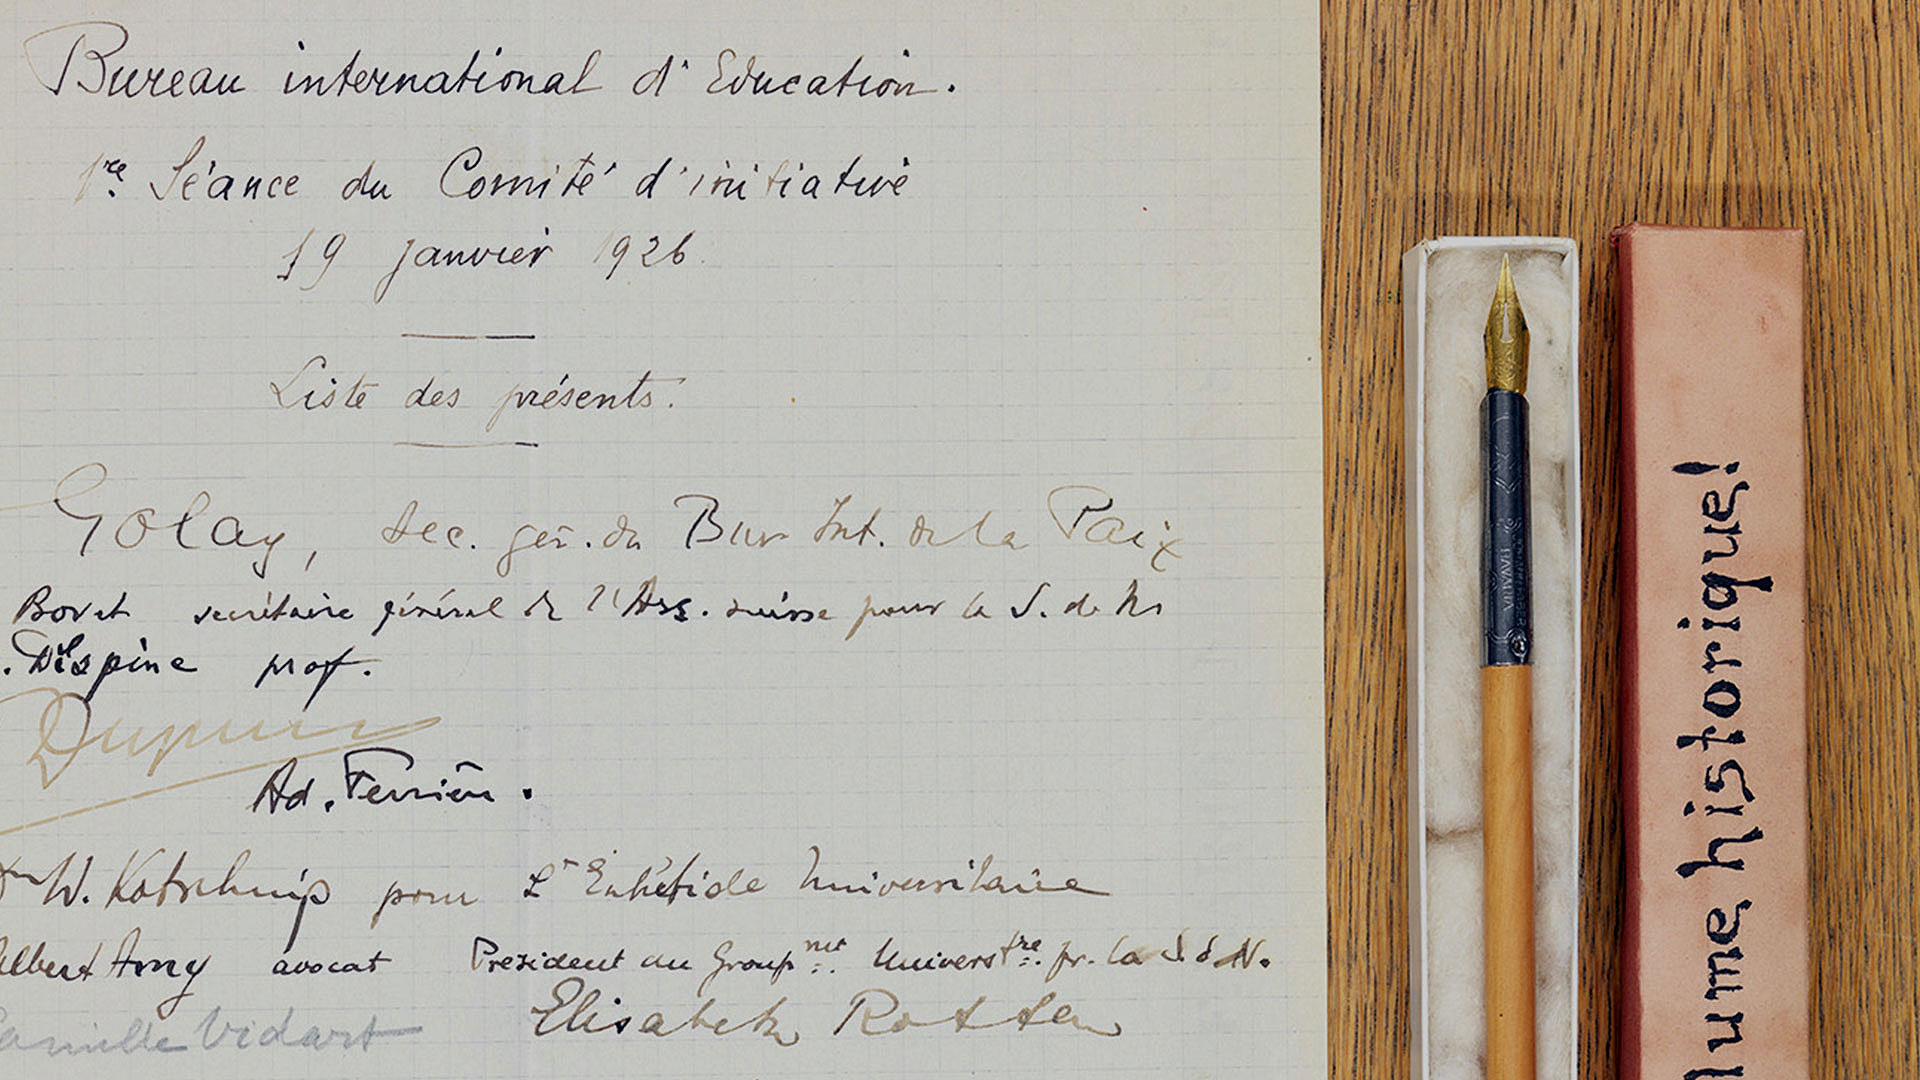 Bureau international d'Education.
1re Séance du Comité d'initiative
19 janvier 1926
Liste des présents.
Golay, sec. gén. du Bur Int. de la Paix
Bovet secrétaire général de l'Ass. suisse pour la S. d. Ns
Despine prof.
Dupuis
Ad. Ferrière.
W. Kotschnig pour L'Entr'aide Universitaire
Albert Amy avocat Président du Group.mnt Univers.tre pr. la S. d. N.
Camille Vidart Elisabeth Rotten
lume historique!
BAVARIA